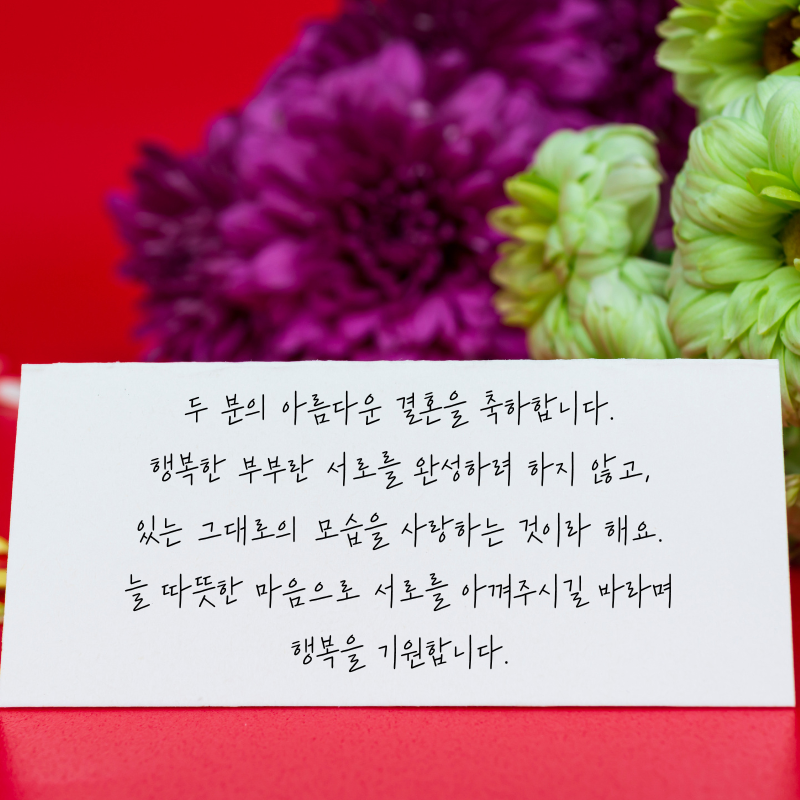 두 분의 아름다운 결혼을 축하합니다.
행복한 부부란 서로를 완성하려 하지 않고,
있는 그대로의 모습을 사랑하는 것이라 해요.
늘 따뜻한 마음으로 서로를 아껴주시길 바라며
행복을 기원합니다.